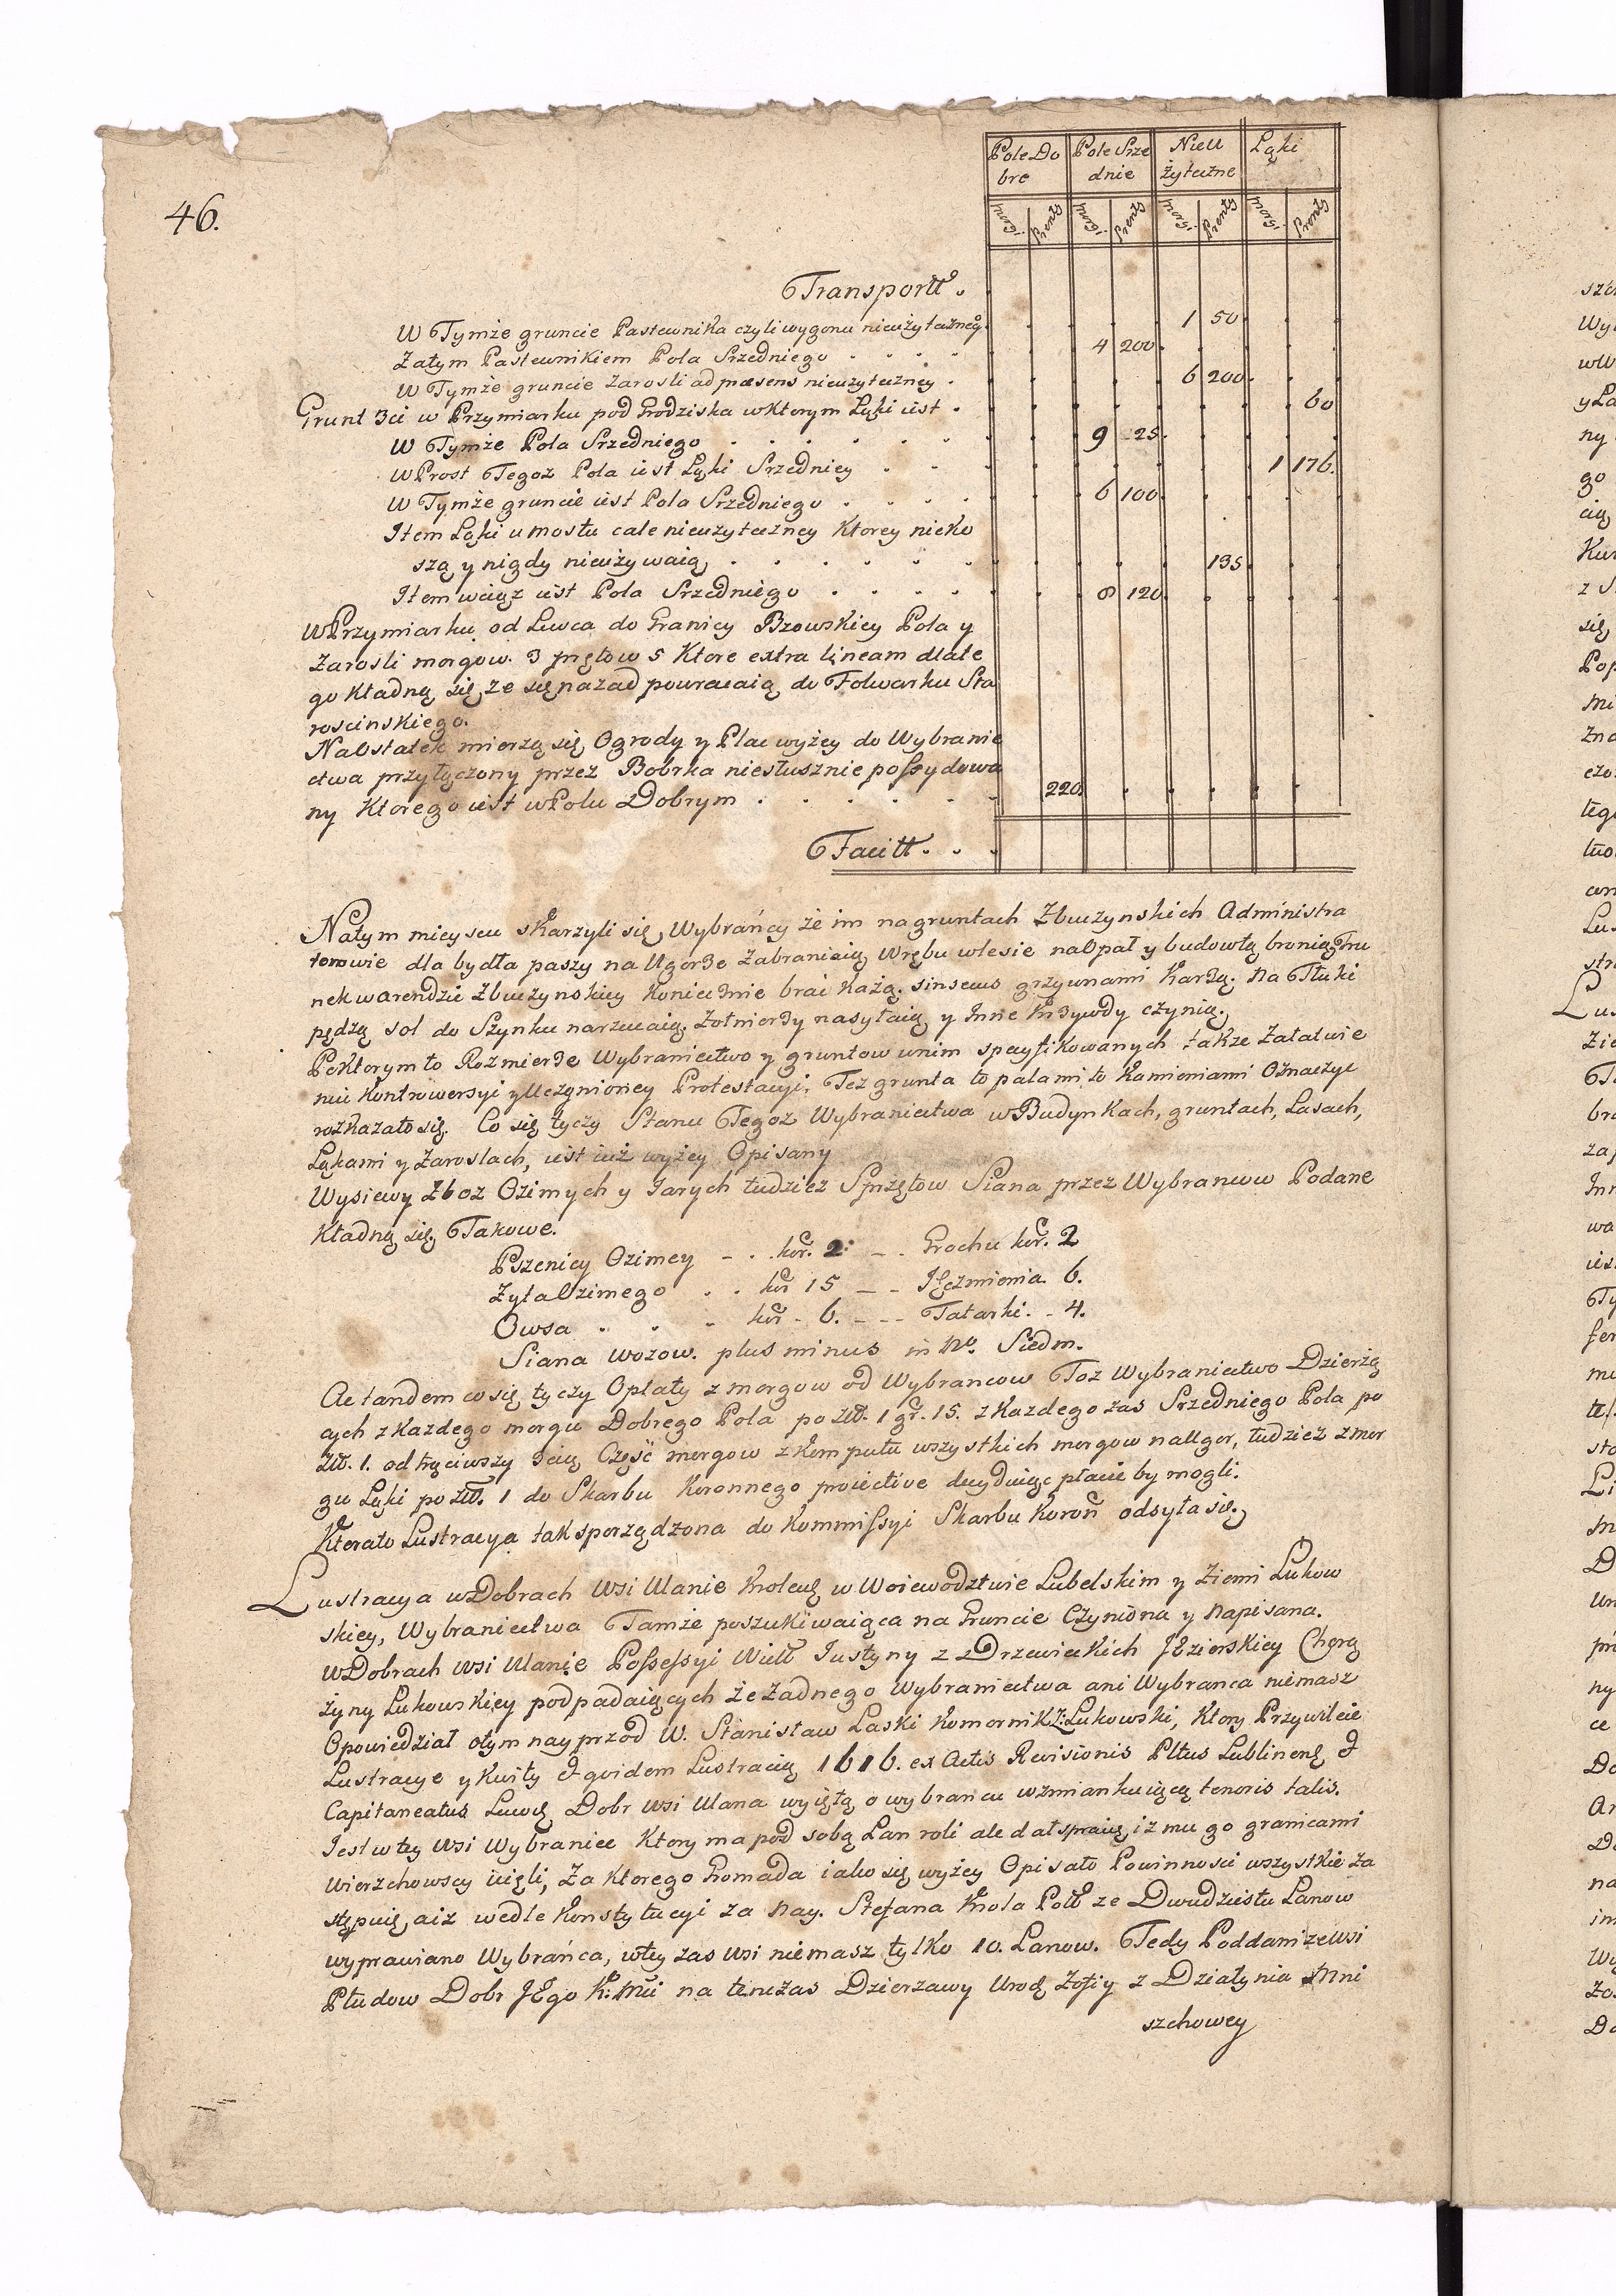 46.
Pole Do Pole Srze Nieu Łąki
bre dnie żyteczne
morgi Prenty morgi Prenty morgi Prenty morgi Prenty
Transportt.
W Tymże gruncie Pastewnika czyli wygonu nieużyteczneg. 1 50
Zatym Pastewnikiem Pola Srzedniego 4 200
W Tymże gruncie Zarosli ad præsens nieużyteczney 6 200
Grunt 3ci w Przymiarku pod Grodziska w Ktorym Łąki iest 60
W Tymże Pola Srzedniego 9 25
W Prost Tegoż Pola iest Łąki Srzedniey 1 176
W Tymże gruncie iest Pola Srzedniego 6 100
Item Łąki u mostu cale nieużyteczney Ktorey nieko
szą y nigdy nieużywaią 135
Item wciąz iest Pola Srzedniego 8 120
W Przymiarku od Lewca do Granicy Bzowskiey Pola y
Zarosli morgow. 3 prętow 5 Ktore extra lineam dlate
go Kładną się, że się nazad powracaią do Folwarku Sta
roscinskiego.
Naostatek mierzą się Ogrody y Plac wyżey do Wybranie
ctwa przyłączony przez Bobrka niesłusznie possydowa
ny Ktorego iest w Polu Dobrym 220
Facitt.
Natym mieyscu skarżyli się Wybrańcy że im na gruntach Zbuczynskich Administra
torowie dla bydła paszy na Ugorze Zabraniaią Wrębu wlesie na Opał y budowlą bronią Tru
nek warendzie Zbuczynskiey Koniecznie brać Każą. sinsews grzywnami Karzą. Na Tłuki
pędzą sol do Szynku narzucaią. Zołnierzy nasyłaią y Inne Krzywdy czynią.
Po Ktorym to Rozmierze Wybraniectwo y gruntow wnim specyfikowanych także Załatwie
niu Kontrowersyi y Uczynioney Protestacyi, Też grunta to palami to Kamieniami Oznaczyć
rozkazało się. Co się tyczy Stanu Tegoż Wybraniectwa w Budynkach, gruntach, Lasach,
Łąkami y Zaroslach, iest iuż wyżey Opisany
Wysiewy Zboz Ozimych y Jarych tudzież Sprzętow Siana przez Wybrancow Podane
Kładną się Takowe.
Pszenicy Ozimey - . . kor. 2. - . Grochu kor. 2
Zyta Ozimego . . kor 15 - - Jęczmienia. 6.
Owsa . . . kor - 6. - - - Tatarki. - 4.
Siana wozow. plus minus in No. Siedm.
Ac tandem co się tyczy Opłaty z morgow od Wybrancow Toż Wybraniectwo Dzierżą
cych z Kazdego morgu Dobrego Pola po Złł. 1 gr. 15. z Kazdego zas Srzedniego Pola po
Złł. 1. odtrąciwszy 3cią Część morgow z Komputu wszystkich morgow na Ugor, tudzież z mor
gu Łąki po Złł. 1 do Skarbu Koronnego proiective decyduiąc płacić by mogli.
Ktorato Lustracya tak sporządzona do Kommissyi Skarbu Koron odsyła się.
Lustracya w Dobrach Wsi Ulanie Krolews w Woiewodztwie Lubelskim y Ziemi Lukow
skiey, Wybraniectwa Tamże poszukiwaiąca na Gruncie Czyniona y Napisana.
w Dobrach Wsi Ulanie Possessyi Wielł Justyny z Drzewieckich Jezierskiey Chorą
żyny Lukowskiey podpadaiących że Zadnego Wybraniectwa ani Wybranca niemasz
Opowiedział otym nayprzod W. Stanisław Laski Komornik Z: Lukowski, Ktory Przywileie
Lustracye y Kwity & quidem Lustracią 1616. ex Actis Revisionis Pltus Lublinens &
Capitaneatus Lucovs Dobr Wsi Ulana wyiętą o wybrancu wzmiankuiącą tenoris talis.
Jest w tey Wsi Wybraniec Ktory ma pod sobą Łan roli ale dał sprawę iż mu go granicami
Wierzchowscy uięli, Za Ktorego Gromada iako się wyżey Opisało Powinnosci wszystkie Za
stępuię, aiż wedle Konstytucyi Za Nay. Stefana Krola Poll ze Dwudziestu Lanow
wyprawiano Wybrańca, w tey zas Wsi niemasz tylko 10. Lanow. Tedy Poddani ze Wsi
Płudow Dobr JEgo K: Mci na tenczas Dzierżawy Urodz Zofiy z Działynia Mni
szchowey